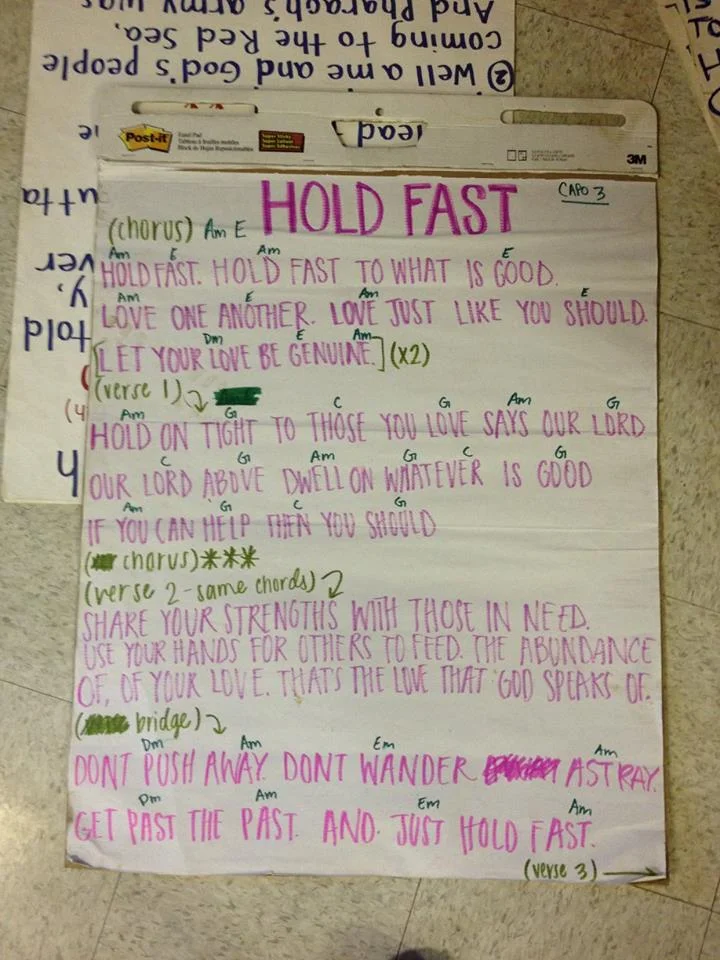 And Pharaoh's army was
coming to the Red Sea,
② Well a me and God's people
Post-it
Super Sticky
lead
3M
utta
ver
y,
told
(4
h
HOLD FAST
CAPO 3
(chorus) Am E
Am E Am E
HOLD FAST. HOLD FAST TO WHAT IS GOOD.
Am E Am E
LOVE ONE ANOTHER. LOVE JUST LIKE YOU SHOULD.
Dm E Am
[LET YOUR LOVE BE GENUINE.] (X2)
(verse 1)
Am G C G Am G
HOLD ON TIGHT TO THOSE YOU LOVE SAYS OUR LORD
C G Am G C G
OUR LORD ABOVE DWELL ON WHATEVER IS GOOD
Am G C G
IF YOU CAN HELP THEN YOU SHOULD
(chorus)***
(verse 2 - same chords)
SHARE YOUR STRENGTHS WITH THOSE IN NEED.
USE YOUR HANDS FOR OTHERS TO FEED. THE ABUNDANCE
OF, OF YOUR LOVE. THAT'S THE LOVE THAT GOD SPEAKS OF.
(bridge)
Dm Am Em Am
DONT PUSH AWAY. DONT WANDER ASTRAY.
Dm Am Em Am
GET PAST THE PAST. AND. JUST HOLD FAST.
(verse 3)